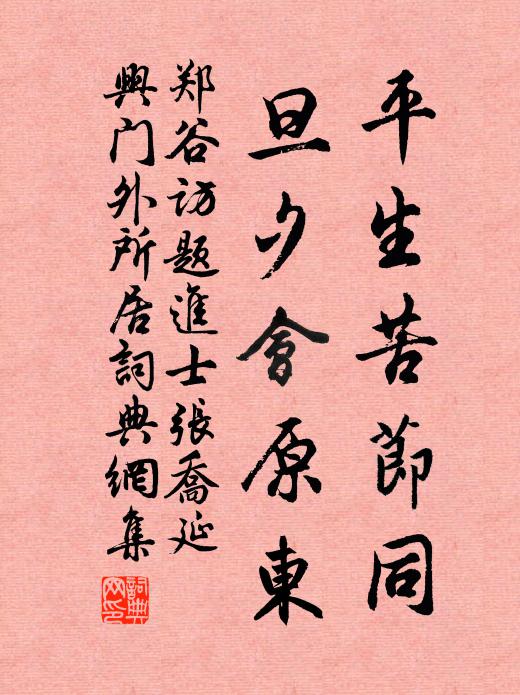 平生苦節同
旦夕會原東
郑谷訪題進士張喬延
興门外所居詞典網集
詞典网印